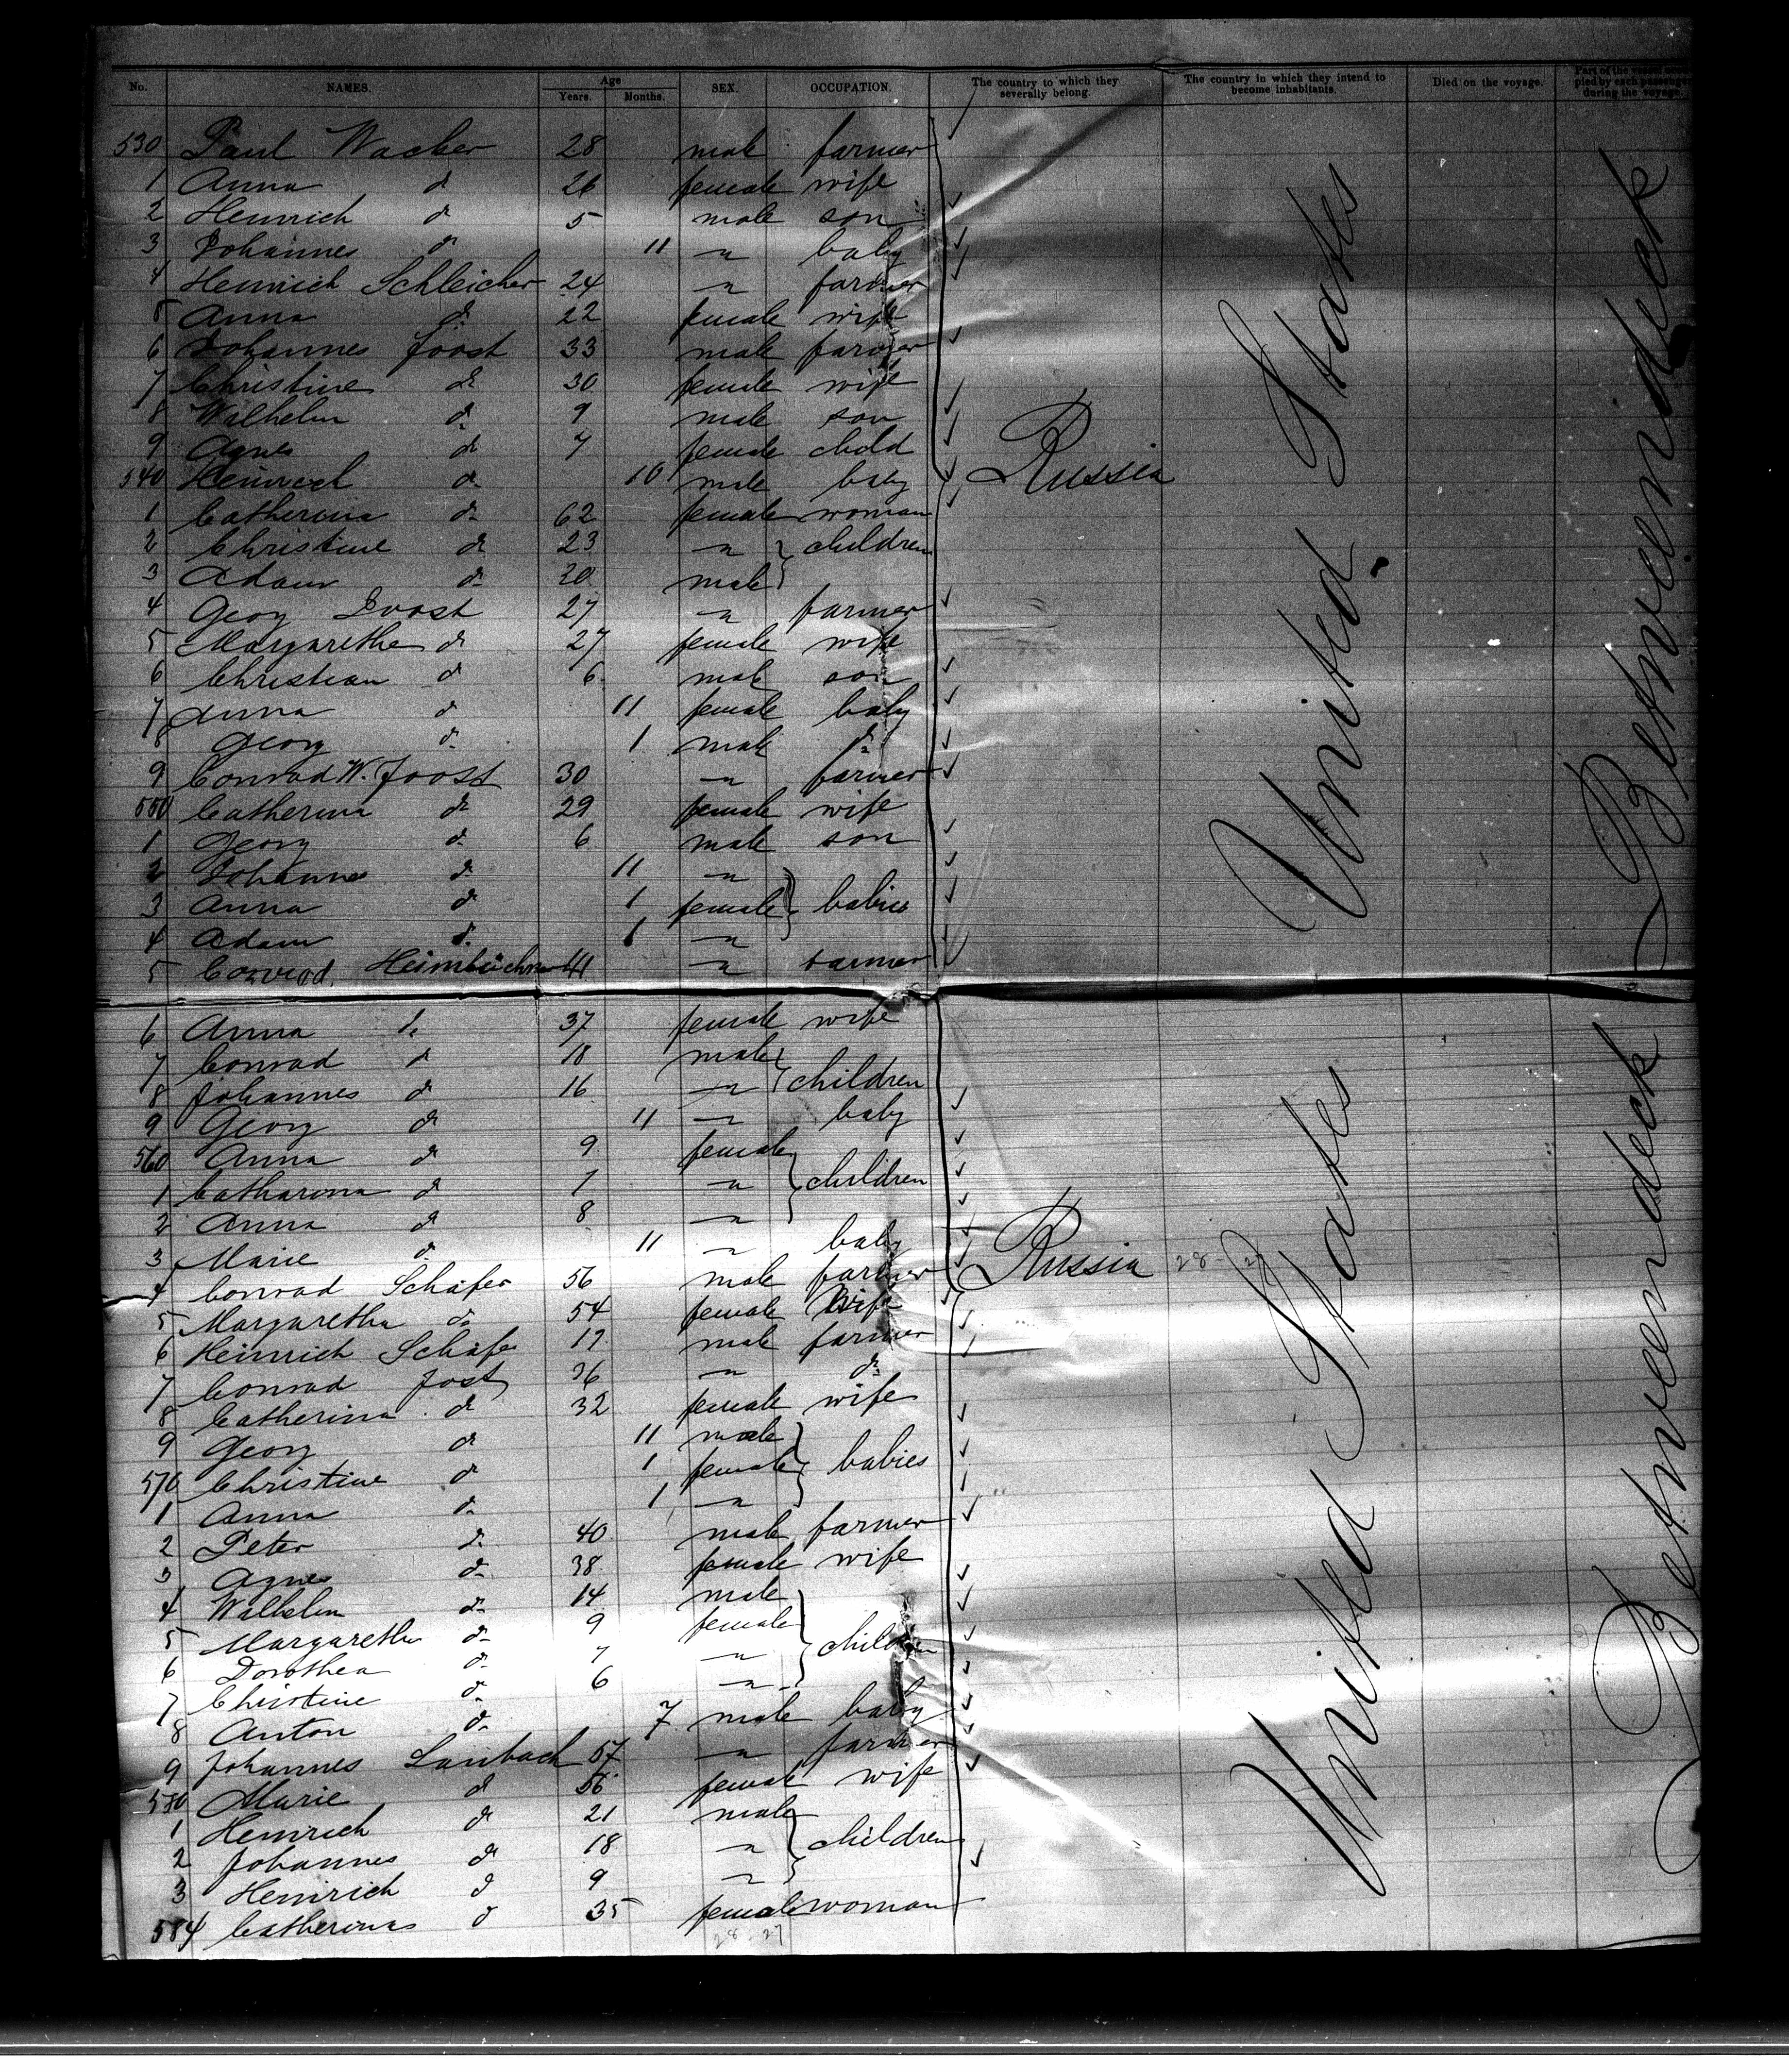 No. NAMES. Age Years. Months. SEX. OCCUPATION. The country to which they severally belong. The country in which they intend to become inhabitants. Died on the voyage. Part of the vessel occupied by each passenger during the voyage.
530 Paul Wacker 28 male farmer
1 Anna do 26 female wife
2 Heinrich do 5 male son
3 Johannes do 11 " baby
4 Heinrich Schleicher 24 " farmer
5 Anna do 22 female wife
6 Johannes Joost 33 male farmer
7 Christine do 30 female wife
8 Wilhelm do 9 male son
9 Agnes do 7 female child
540 Heinrich do 10 male baby
1 Catherina do 62 female woman
2 Christine do 23 " children
3 Adam do 20 male
4 Georg Joost 27 " farmer
5 Margarethe do 27 female wife
6 Christian do 6 male son
7 Anna do 11 female baby
8 Georg do 1 male do
9 Conrad W. Joost 30 " farmer
550 Catherina do 29 female wife
1 Georg do 6 male son
2 Johannes do 11 "
3 Anna do 1 female babies
4 Adam do 1 "
5 Conrad Heimbüchner 41 " farmer
Russia
United States
Between deck
6 Anna do 37 female wife
7 Conrad do 18 male
8 Johannes do 16 " children
9 Georg do 11 " baby
560 Anna do 9 female
1 Catharina do 7 " children
2 Anna do 8 "
3 Marie do 11 " baby
4 Conrad Schäfer 56 male farmer
5 Margaretha do 54 female Wife
6 Heinrich Schäfer 19 male farmer
7 Conrad Jost 36 " do
8 Catherina do 32 female wife
9 Georg do 11 male
570 Christine do 1 female babies
1 Anna do 1 "
2 Peter do 40 male farmer
3 Agnes do 38 female wife
4 Wilhelm do 14 male
5 Margaretha do 9 female children
6 Dorothea do 7 "
7 Christine do 6 "
8 Anton do 7 male baby
9 Johannes Laubach 57 " farmer
580 Marie do 56 female wife
1 Heinrich do 21 male
2 Johannes do 18 " children
3 Heinrich do 9 "
584 Catherina do 35 female woman
Russia
28-27
United States
Between deck
28-27